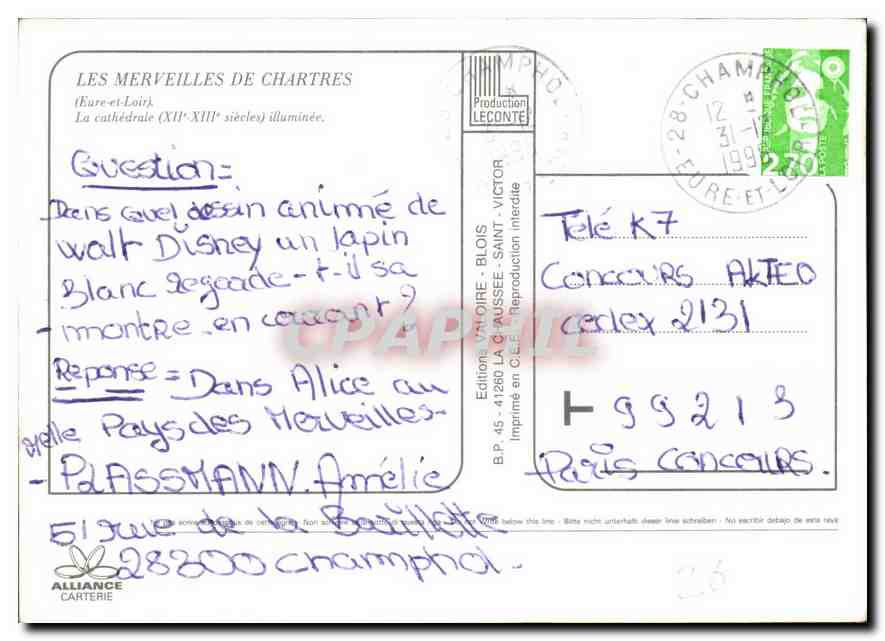 LES MERVEILLES DE CHARTRES
(Eure-et-Loir).
La cathédrale (XIIe-XIIIe siècles) illuminée.
Question =
- Dans quel dessin animé de
Walt Disney un lapin
Blanc regarde-t-il sa
- montre en courant ?
Reponse = Dans Alice au
Pays des Merveilles-
- PLASSMANN. Amélie
51 rue de la
28300 Champhol.
ALLIANCE
CARTERIE
Production
LECONTE
Editions VALOIRE - BLOIS
B.P. 45 - 41260 LA CHAUSSEE - SAINT - VICTOR
Imprimé en C.E.E. Reproduction interdite
28-CHAMPHOL
12
31-1
199
EURE-ET-LOIR
2,70
LA POSTE
Telé K7
Concours AKTEO
cedex 2131
T 99213
Paris CONCOURS.
Non write below this line - Bitte nicht unterhalb dieser linie schreiben - No escribir debajo de esta raya
CPAPHIL